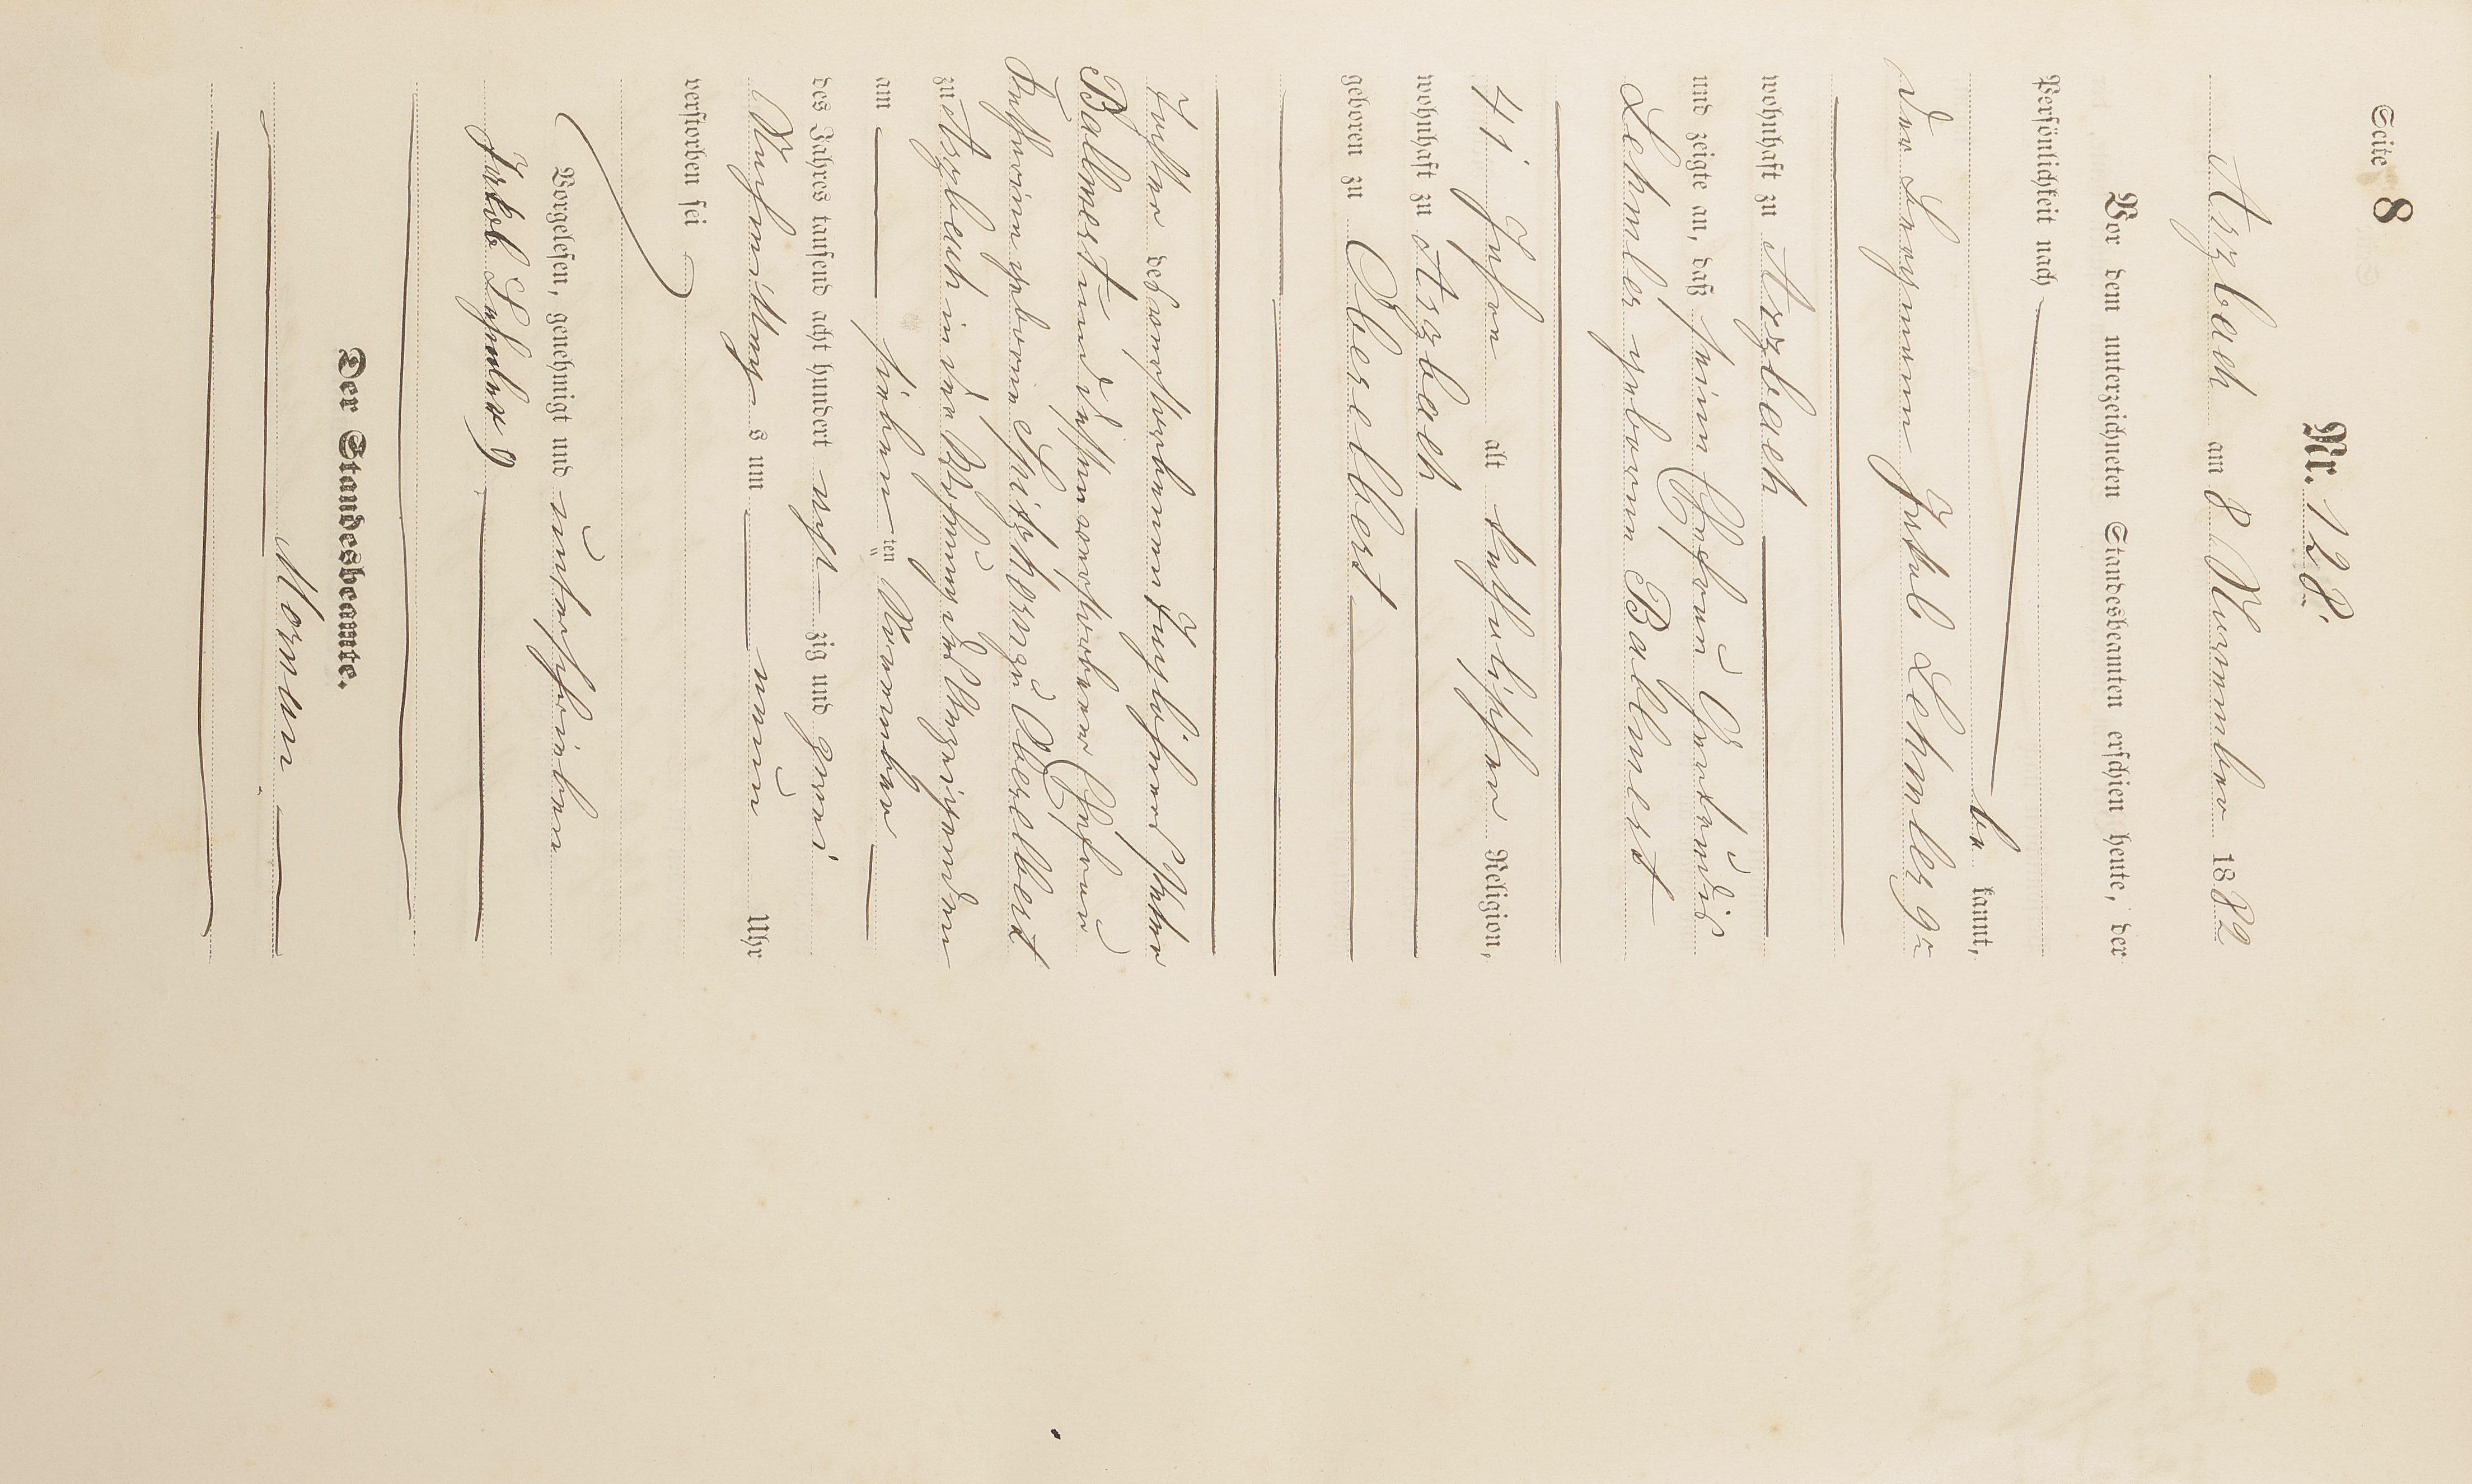 Seite 8
Nr. 128.
Arzbach am 8 November 1882
Vor dem unterzeichneten Standesbeamten erschien heute, der
Persönlichkeit nach
be kannt,
der Bergmann Jakob Lehmler 9r
wohnhaft zu Arzbach
und zeigte an, daß seine Ehefrau Gertrudis
Lehmler geborene Ballmert
41 Jahre alt katholischer Religion,
wohnhaft zu Arzbach
geboren zu Oberelbert
Tochter des verstorbenen Taglöhners Peter
Ballmert und dessen verstorbener Ehefrau
Katharina geborene Spitzhorn zu Oberelbert
zu Arzbach in der Wohnung des Anzeigenden
am sieben ten November
des Jahres tausend acht hundert acht zig und zwei
Nachmittag s um neun Uhr
verstorben sei
Vorgelesen, genehmigt und unterschrieben
Jakob Lehmler 9
Der Standesbeamte.